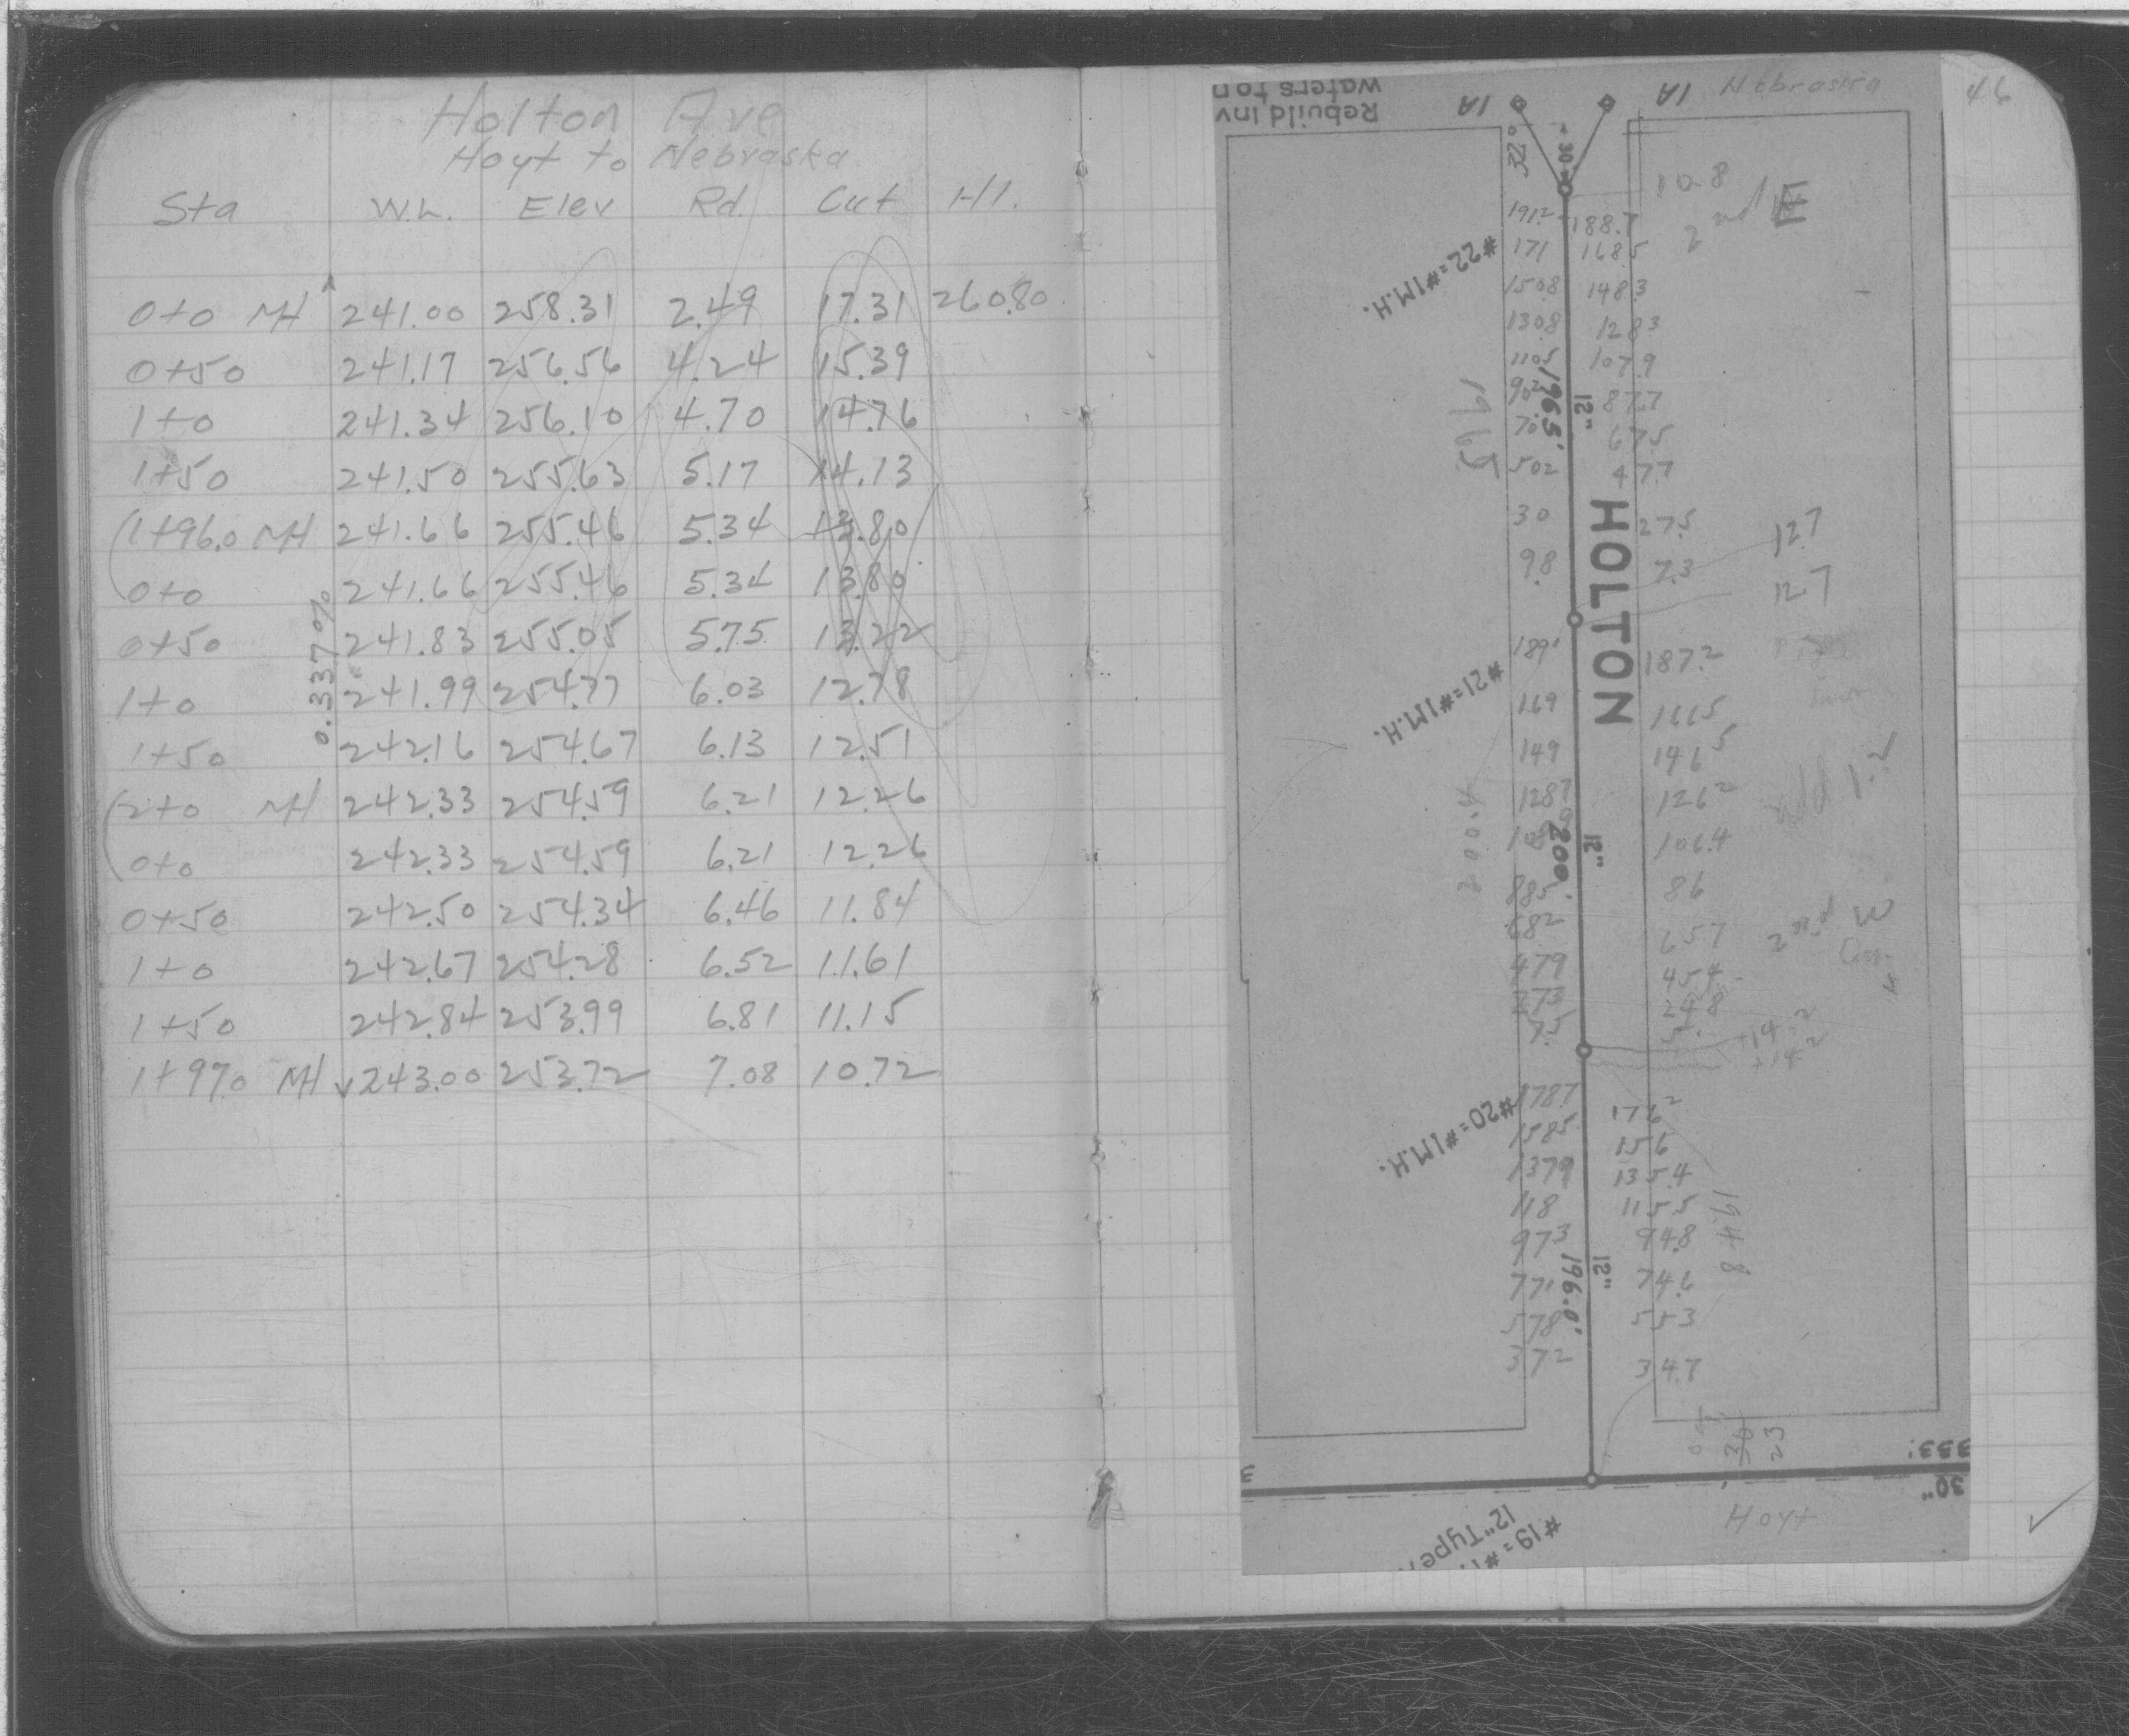 Holton Ave
Hoyt to Nebraska
Sta W.L. Elev Rd. Cut H.I.
0+0 MH 241.00 258.31 2.49 17.31 260.80
0+50 241.17 256.56 4.24 15.39
1+0 241.34 256.10 4.70 14.76
1+50 241.50 255.63 5.17 14.13
(1+96.0 MH 241.66 255.46 5.34 13.80
0+0 241.66 255.46 5.34 13.80
0+50 241.83 255.05 5.75 13.22
1+0 241.99 254.77 6.03 12.78
1+50 242.16 254.67 6.13 12.51
(2+0 MH 242.33 254.59 6.21 12.26
0+0 242.33 254.59 6.21 12.26
0+50 242.50 254.34 6.46 11.84
1+0 242.67 254.28 6.52 11.61
1+50 242.84 253.99 6.81 11.15
1+97.0 MH 243.00 253.72 7.08 10.72
0.337%
46
Rebuild inv
waters ton
1A 1A Nebraska
32° 30
10.8
2nd E
191.2 188.7
171 168.5
150.8 148.3
130.8 128.3
110.5 107.9
90.2 87.7
70 67.5
50.2 47.7
30 27.5
9.8 7.3
#22=#1M.H.
196.5'
12"
196.5
HOLTON
12.7
12.7
189.1 187.2
169 166.5
149 146.5
128.7 126.2
106.4
88.5 86
68.2 65.7
47.9 45.4
27.3 24.8
7.5 5.
#21=#1M.H.
200.'
12"
200.4
add 1.2
2nd W
+14.2
+14.2
178.7 176.2
158.5 156
137.9 135.4
118 115.5
97.3 94.8
77.1 74.6
57.8 55.3
37.2 34.7
#20=#1M.H.
196.0'
12"
194.8
30
23
353.'
30"
Hoyt
#19=#1
12"Type